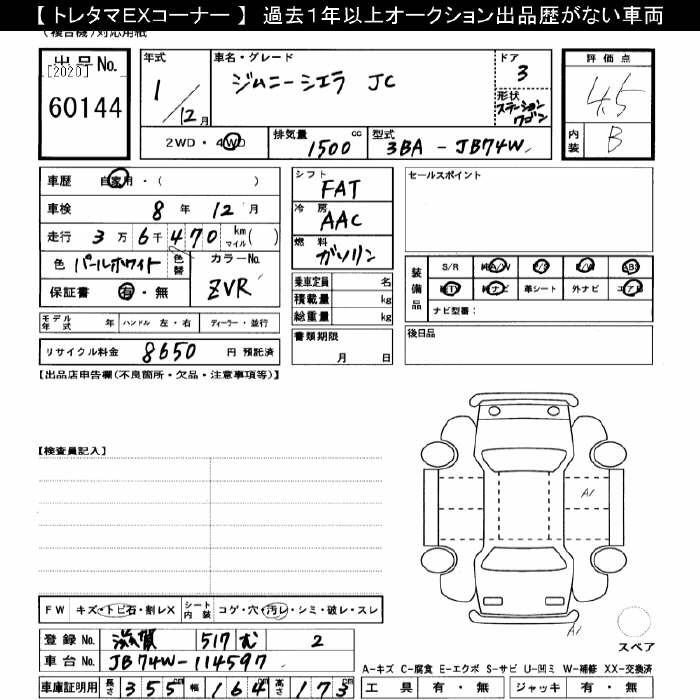 【 トレタマEXコーナー 】 過去1年以上オークション出品歴がない車両
(複合機)対応用紙
出品No.
[2020]
60144
年式
1/12月
車名・グレード
ジムニーシエラ JC
ドア
3
形状
ステーション
ワゴン
2WD・4WD
排気量
1500 cc
型式
3BA - JB74W
評価点
4.5
内装
B
車歴 自家用・( )
車検 8年 12月
走行 3万6千470 km マイル( )
色 パールホワイト
色替
カラーNo.
ZVR
保証書 有・無
モデル年式 年 ハンドル 左・右 ディーラー・並行
リサイクル料金 8650 円 預託済
シフト
FAT
冷房
AAC
燃料
ガソリン
乗車定員 名
積載量 kg
総重量 kg
書類期限
月 日
セールスポイント
装備品
S/R 純A/W P/S P/W ABS
純TV 純ナビ 革シート 外ナビ エアB
ナビ型番:
後日品
【出品店申告欄(不良箇所・欠品・注意事項等)】
【検査員記入】
A1
A1
スペア
FW キズ・トビ石・割レX シート内装 コゲ・穴・汚レ・シミ・破レ・スレ
登録No. 滋賀 517 む 2
車台No. JB74W-114597
車庫証明用 長さ 355cm 幅 164cm 高さ 173cm
A-キズ C-腐食 E-エクボ S-サビ U-凹ミ W-補修 XX-交換済
工具 有・無 ジャッキ 有・無